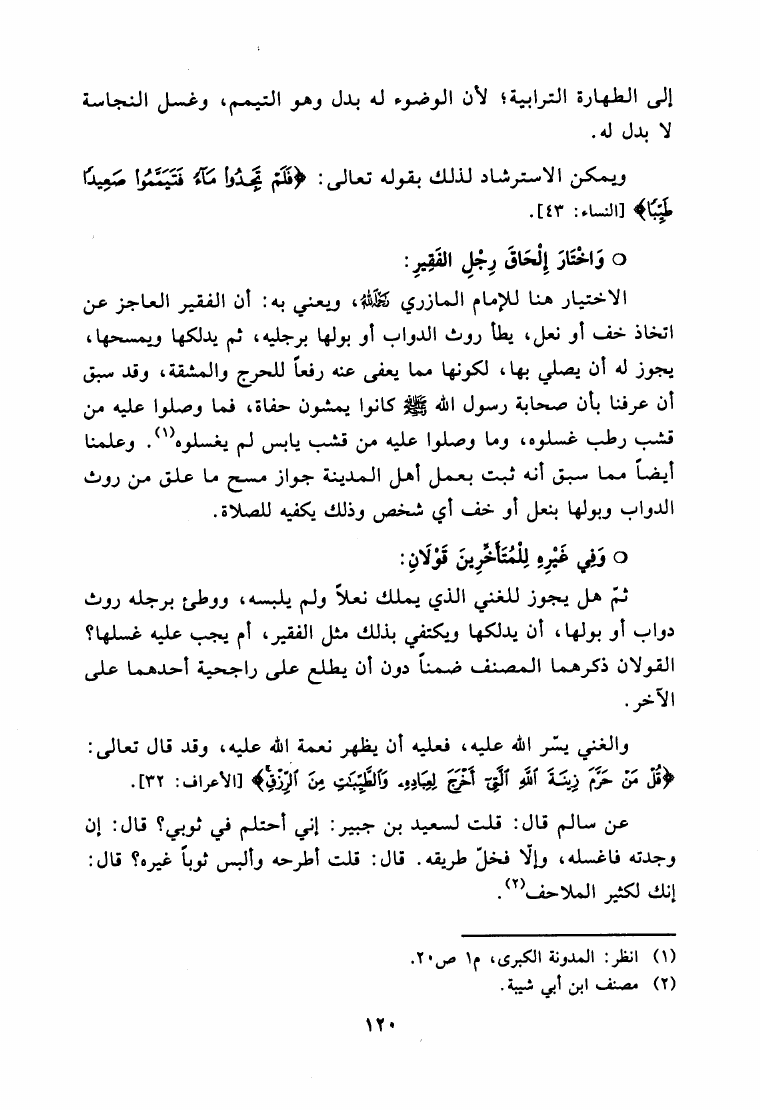 إلى الطهارة الترابية؛ لأن الوضوء له بدل وهو التيمم، وغسل النجاسة
لا بدل له.
ويمكن الاسترشاد لذلك بقوله تعالى: ﴿فَلَمْ تَجِدُوا۟ مَآءً فَتَيَمَّمُوا۟ صَعِيدًا
طَيِّبًا﴾ [النساء: ٤٣].
○ وَاخْتَارَ إِلْحَاقَ رِجْلِ الفَقِيرِ:
الاختيار هنا للإمام المازري رحمه الله، ويعني به: أن الفقير العاجز عن
اتخاذ خف أو نعل، يطأ روث الدواب أو بولها برجليه، ثم يدلكها ويمسحها،
يجوز له أن يصلي بها، لكونها مما يعفى عنه رفعاً للحرج والمشقة، وقد سبق
أن عرفنا بأن صحابة رسول الله ﷺ كانوا يمشون حفاة، فما وصلوا عليه من
قشب رطب غسلوه، وما وصلوا عليه من قشب يابس لم يغسلوه(١). وعلمنا
أيضاً مما سبق أنه ثبت بعمل أهل المدينة جواز مسح ما علق من روث
الدواب وبولها بنعل أو خف أي شخص وذلك يكفيه للصلاة.
○ وَفِي غَيْرِهِ لِلْمُتَأَخِّرِينَ قَوْلَانِ:
ثمّ هل يجوز للغني الذي يملك نعلاً ولم يلبسه، ووطئ برجله روث
دواب أو بولها، أن يدلكها ويكتفي بذلك مثل الفقير، أم يجب عليه غسلها؟
القولان ذكرهما المصنف ضمناً دون أن يطلع على راجحية أحدهما على
الآخر.
والغني يسّر الله عليه، فعليه أن يظهر نعمة الله عليه، وقد قال تعالى:
﴿قُلْ مَنْ حَرَّمَ زِينَةَ ٱللَّهِ ٱلَّتِىٓ أَخْرَجَ لِعِبَادِهِۦ وَٱلطَّيِّبَٰتِ مِنَ ٱلرِّزْقِۚ﴾ [الأعراف: ٣٢].
عن سالم قال: قلت لسعيد بن جبير: إني أحتلم في ثوبي؟ قال: إن
وجدته فاغسله، وإلّا فخلّ طريقه. قال: قلت أطرحه وألبس ثوباً غيره؟ قال:
إنك لكثير الملاحف(٢).
(١) انظر: المدونة الكبرى، م١ ص٢٠.
(٢) مصنف ابن أبي شيبة.
١٢٠